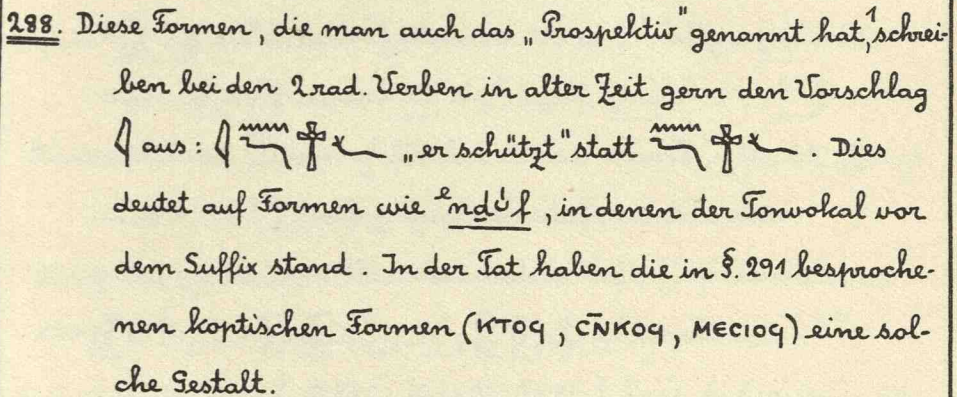 288. Diese Formen, die man auch das „Prospektiv" genannt hat,¹ schrei-
ben bei den 2rad. Verben in alter Zeit gern den Vorschlag
𓇋 aus: 𓇋𓈖𓆓𓐩𓆑 „er schützt" statt 𓈖𓆓𓐩𓆑. Dies
deutet auf Formen wie ᵉnḏŭ́f, in denen der Tonvokal vor
dem Suffix stand. In der Tat haben die in §. 291 besproche-
nen koptischen Formen (ⲕⲧⲟϥ, ⲥⲛ̄ⲕⲟϥ, ⲙⲉⲥⲓⲟϥ) eine sol-
che Gestalt.